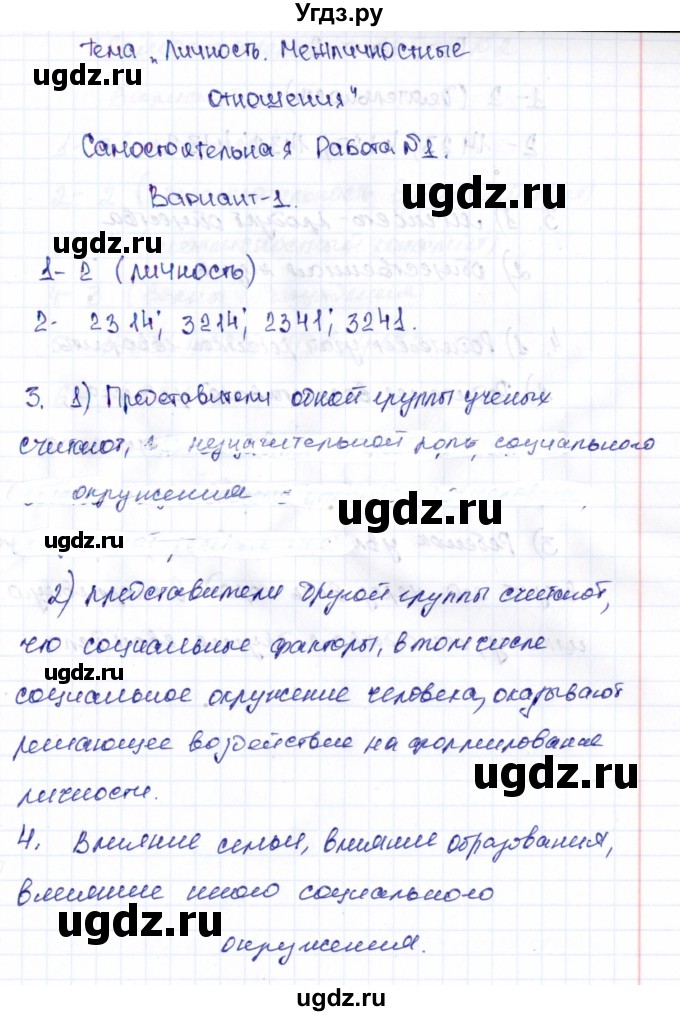 Угдз.ру
Тема „Личность. Межличностные
отношения"
Самостоятельная Работа №1.
Вариант-1.
1- 2 (личность)
2- 2314; 3214; 2341; 3241.
3. 1) Представители одной группы ученых
считают, незначительной роль социального
окружения
2) представители другой группы считают,
что социальные факторы, в том числе
социальное окружение человека, оказывают
решающее воздействие на формирование
личности.
4. Влияние семьи, влияние образования,
влияние иного социального
окружения.
ugdz.ru
ugdz.ru
ugdz.ru
ugdz.ru
ugdz.ru
ugdz.ru
ugdz.ru
ugdz.ru
ugdz.ru
ugdz.ru